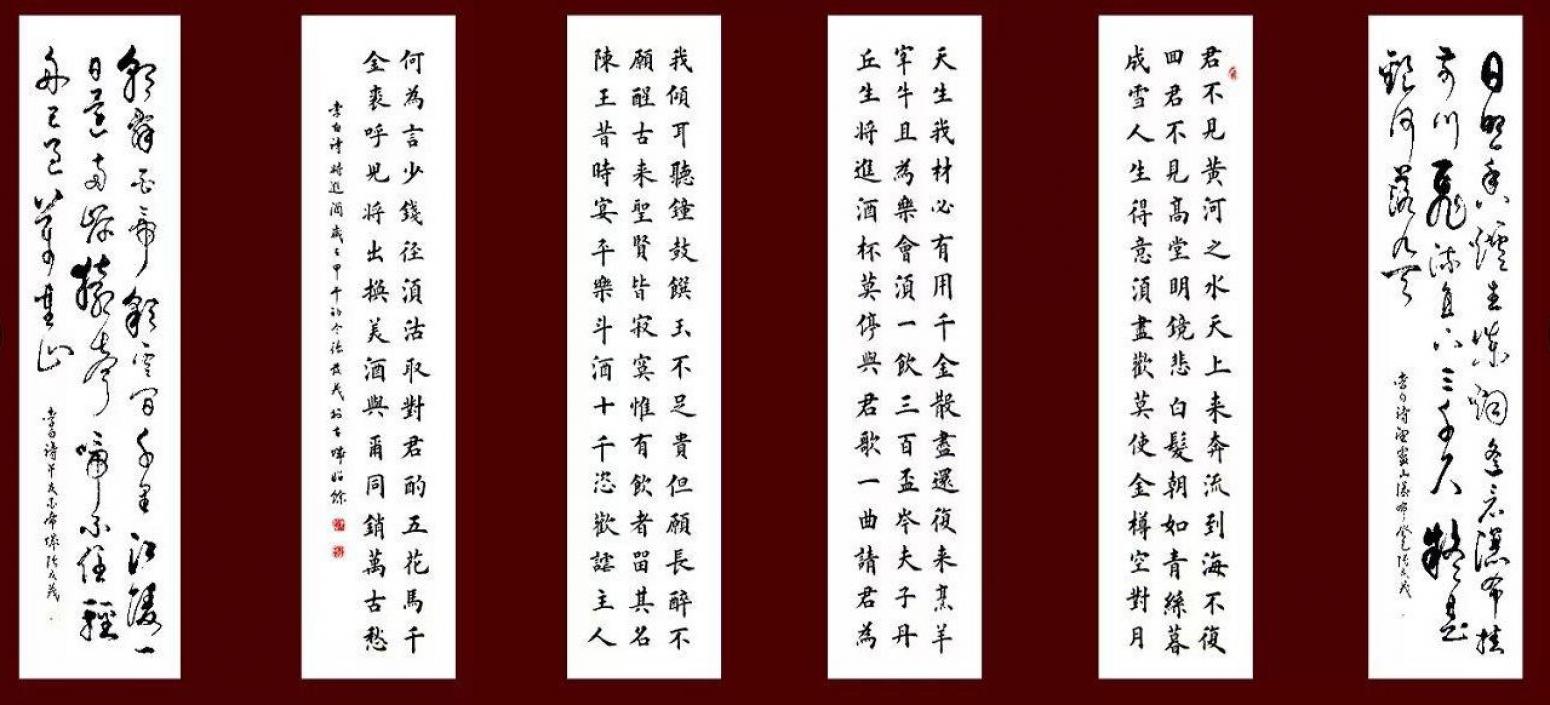 日照香爐生紫烟遙看瀑布挂
前川飛流直下三千尺疑是
銀河落九天
李白詩望廬山瀑布
君不見黃河之水天上来奔流到海不復
回君不見高堂明鏡悲白髮朝如青絲暮
成雪人生得意湏盡歡莫使金樽空對月
天生我材必有用千金散盡還復来烹羊
宰牛且為樂會湏一飲三百盃岑夫子丹
丘生将進酒杯莫停與君歌一曲請君為
我傾耳聽鐘鼓饌玉不足貴但願長醉不
願醒古来聖賢皆寂寞惟有飲者留其名
陳王昔時宴平樂斗酒十千恣歡謔主人
何為言少錢径湏沽取對君酌五花馬千
金裘呼児将出換美酒與爾同銷萬古愁
李白詩将進酒歲在甲午初冬
朝辭白帝彩雲間千里江陵一
日還兩岸猿聲啼不住輕
舟已過萬重山
李白詩早發白帝城